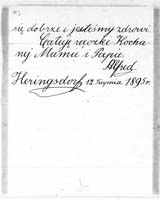 się dobrze i jesteśmy zdrowi
Całuję rączki Kocha-
nej Mumii i Papie
Alfred.
Heringsdorf 12 1895 r.